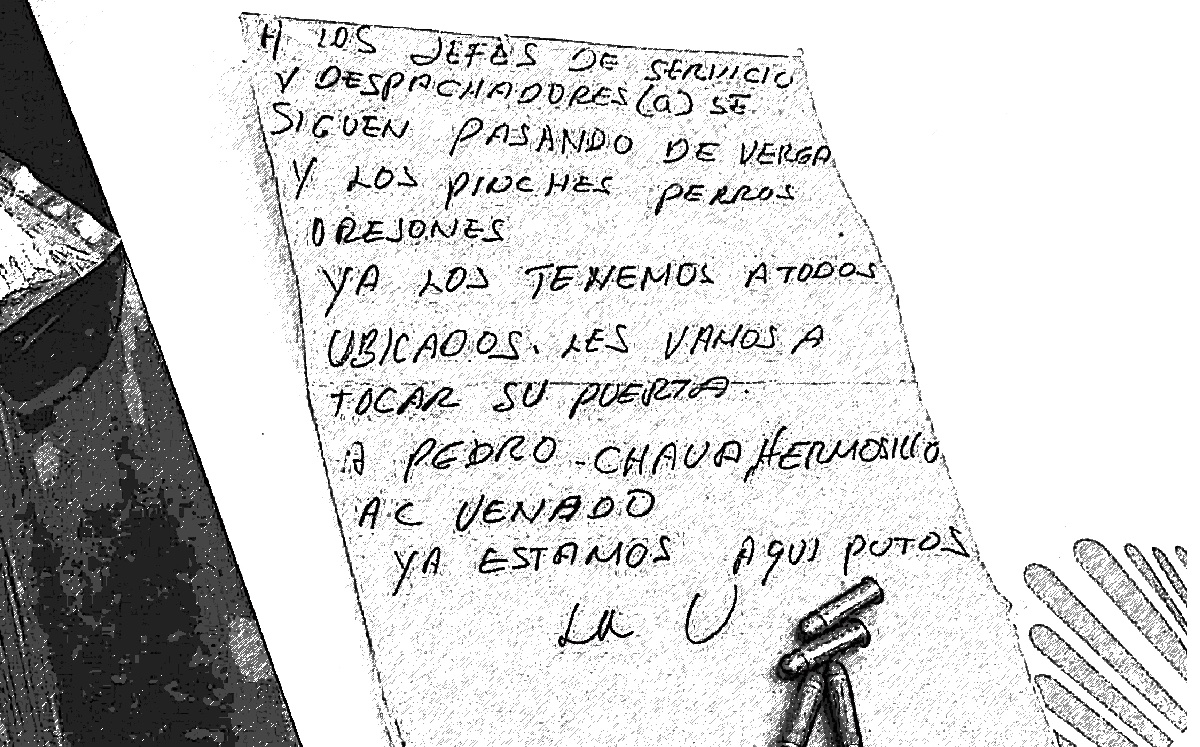 A LOS JEFES DE SERVICIO
Y DESPACHADORES (a) SE
SIGUEN PASANDO DE VERGA
Y LOS PINCHES PERROS
OREJONES
YA LOS TENEMOS A TODOS
UBICADOS. LES VAMOS A
TOCAR SU PUERTA.
A PEDRO - CHAVA HERMOSILLO
AC VENADO
YA ESTAMOS AQUI PUTOS
La U